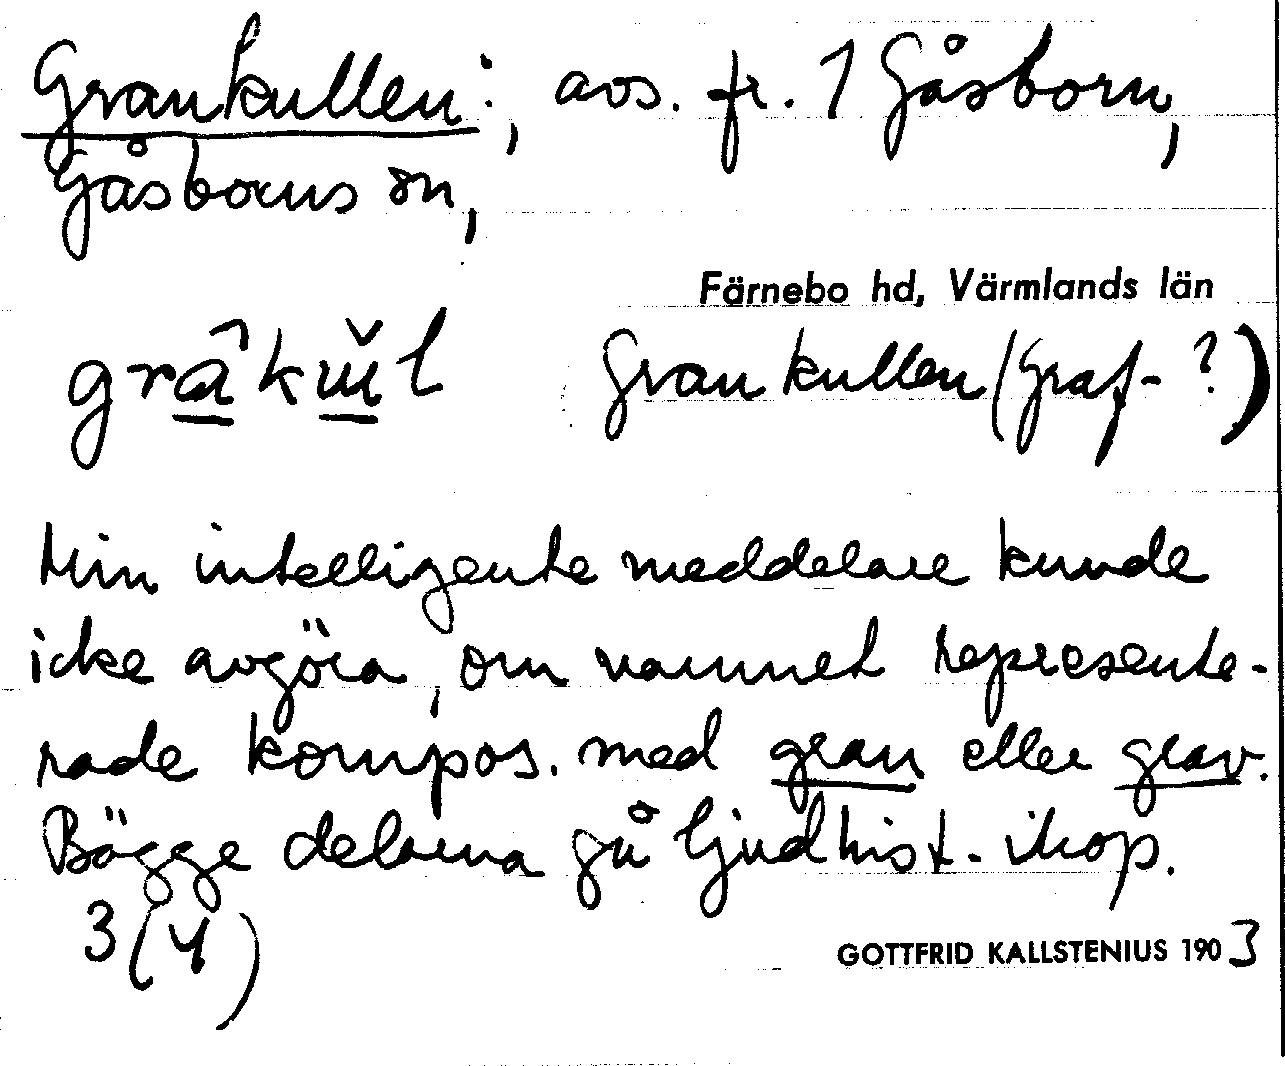 Grankullen:, avs. fr. 1 Gåsborn,
Gåsborns sn,
Färnebo hd, Värmlands län
Grankullen (Graf- ?)
Min intelligente meddelare kunde
icke avgöra, om namnet represente-
rade kompos. med gran eller grav.
Bägge delarna gå ljudhist. ihop.
3 (4)
GOTTFRID KALLSTENIUS 1903